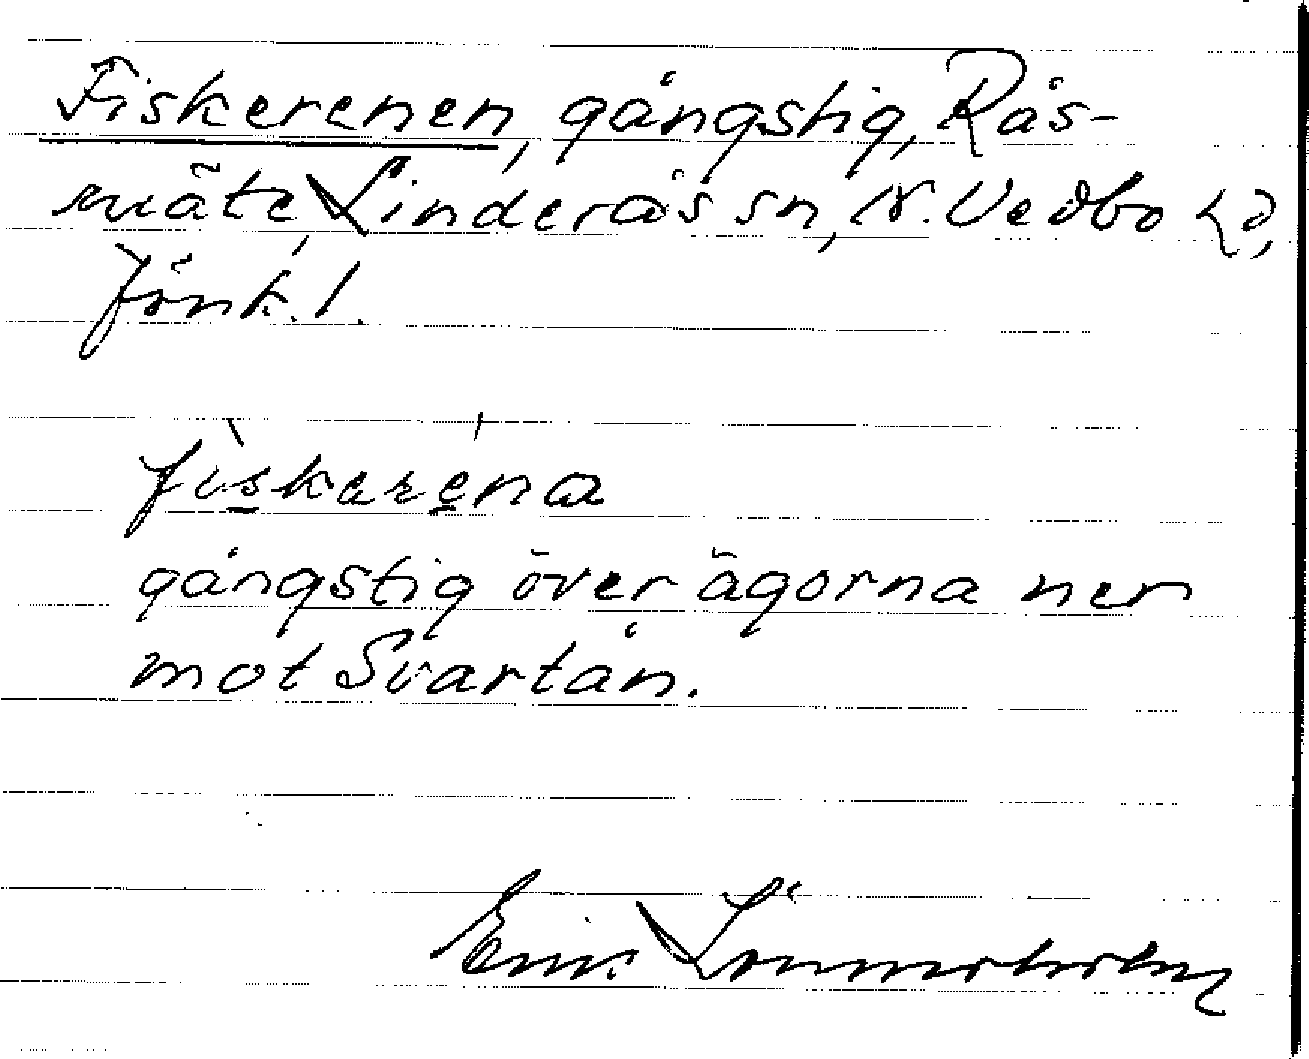 Fiskerenen, gångstig, Rås-
mäte, Linderås sn, N. Vedbo hd,
Jönk. l.
fiskarena
gångstig över ägorna ner
mot Svartån.